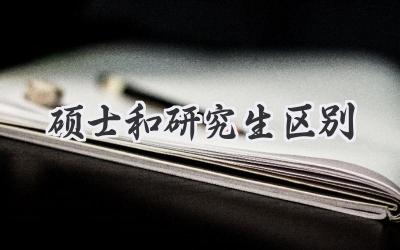 硕士和研究生区别